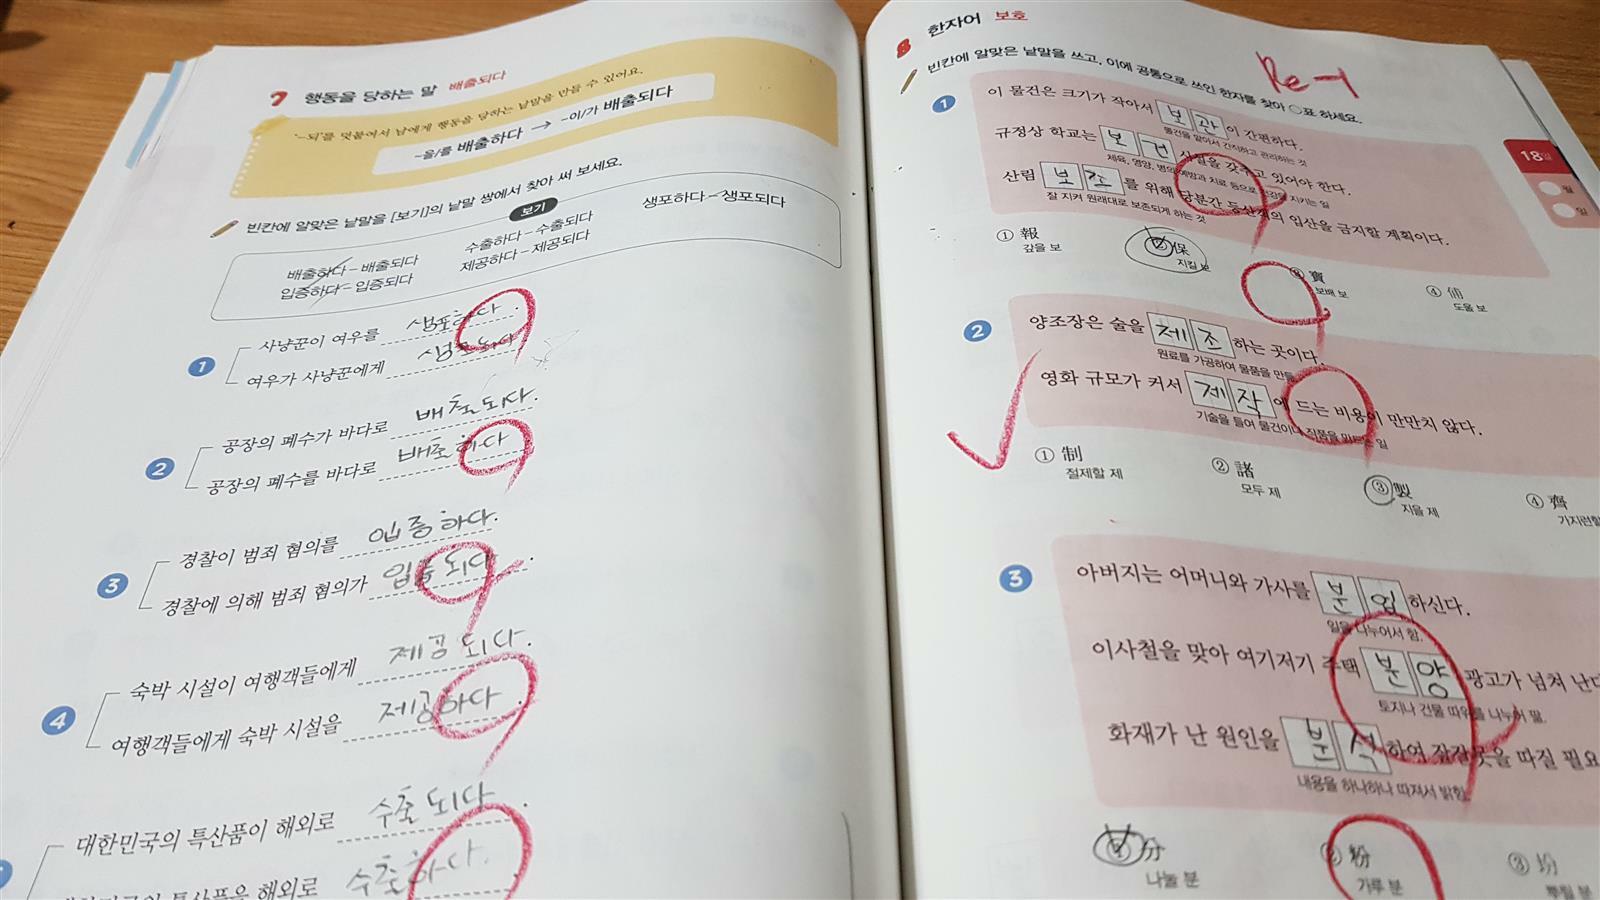 7 행동을 당하는 말 배출되다
'-되'를 덧붙여서 남에게 행동을 당하는 낱말을 만들 수 있어요.
-을/를 배출하다 → -이/가 배출되다
빈칸에 알맞은 낱말을 [보기]의 낱말 쌍에서 찾아 써 보세요.
보기
배출하다 - 배출되다 수출하다 - 수출되다 생포하다 - 생포되다
입증하다 - 입증되다 제공하다 - 제공되다
1 사냥꾼이 여우를 생포하다.
여우가 사냥꾼에게 생포되다.
2 공장의 폐수가 바다로 배출되다.
공장의 폐수를 바다로 배출하다.
3 경찰이 범죄 혐의를 입증하다.
경찰에 의해 범죄 혐의가 입증되다.
4 숙박 시설이 여행객들에게 제공되다.
여행객들에게 숙박 시설을 제공하다.
대한민국의 특산품이 해외로 수출되다.
특산품을 해외로 수출하다.
8 한자어 보호
Re-1
빈칸에 알맞은 낱말을 쓰고, 이에 공통으로 쓰인 한자를 찾아 ○표 하세요.
18일
월
일
1 이 물건은 크기가 작아서 보관이 간편하다.
물건을 맡아서 간직하고 관리하는 것
규정상 학교는 보건 시설을 갖추고 있어야 한다.
체육, 영양, 병의 예방과 치료 등으로 건강을 지키는 일
산림 보존를 위해 당분간 등산객의 입산을 금지할 계획이다.
잘 지켜 원래대로 보존되게 하는 것
① 報 ② 保 ③ 寶 ④
갚을 보 지킬 보 보배 보 도울 보
2 양조장은 술을 제조하는 곳이다.
원료를 가공하여 물품을 만듦
영화 규모가 커서 제작에 드는 비용이 만만치 않다.
기술을 들여 물건이나 작품을 만드는 일
① 制 ② 諸 ③ 製 ④ 齊
절제할 제 모두 제 지을 제 가지런할
3 아버지는 어머니와 가사를 분업하신다.
일을 나누어서 함.
이사철을 맞아 여기저기 주택 분양 광고가 넘쳐 난다
토지나 건물 따위를 나누어 팖.
화재가 난 원인을 분석하여 잘잘못을 따질 필요
내용을 하나하나 따져서 밝힘.
① 分 ② 粉 ③
나눌 분 가루 분 뿌릴 분